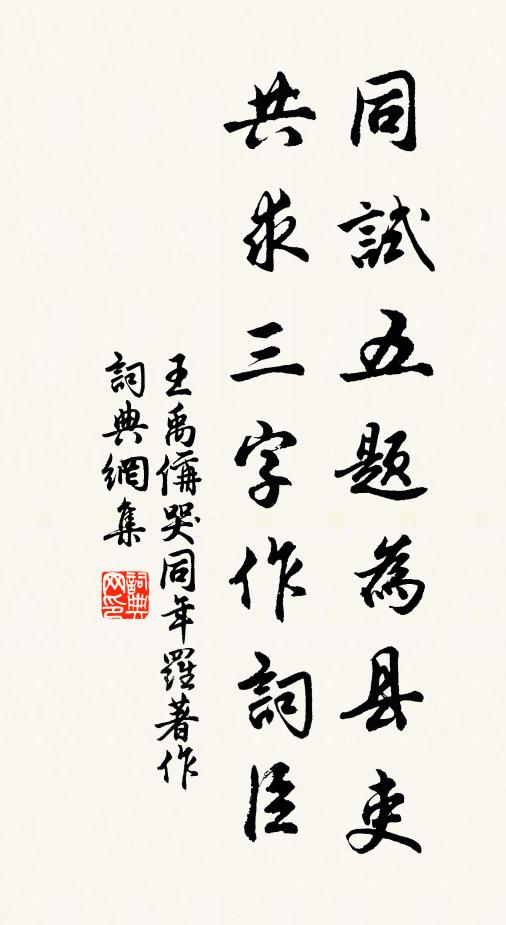 同試五题為县吏
共求三字作詞臣
王禹偁哭同年羅著作
詞典網集
詞典网印